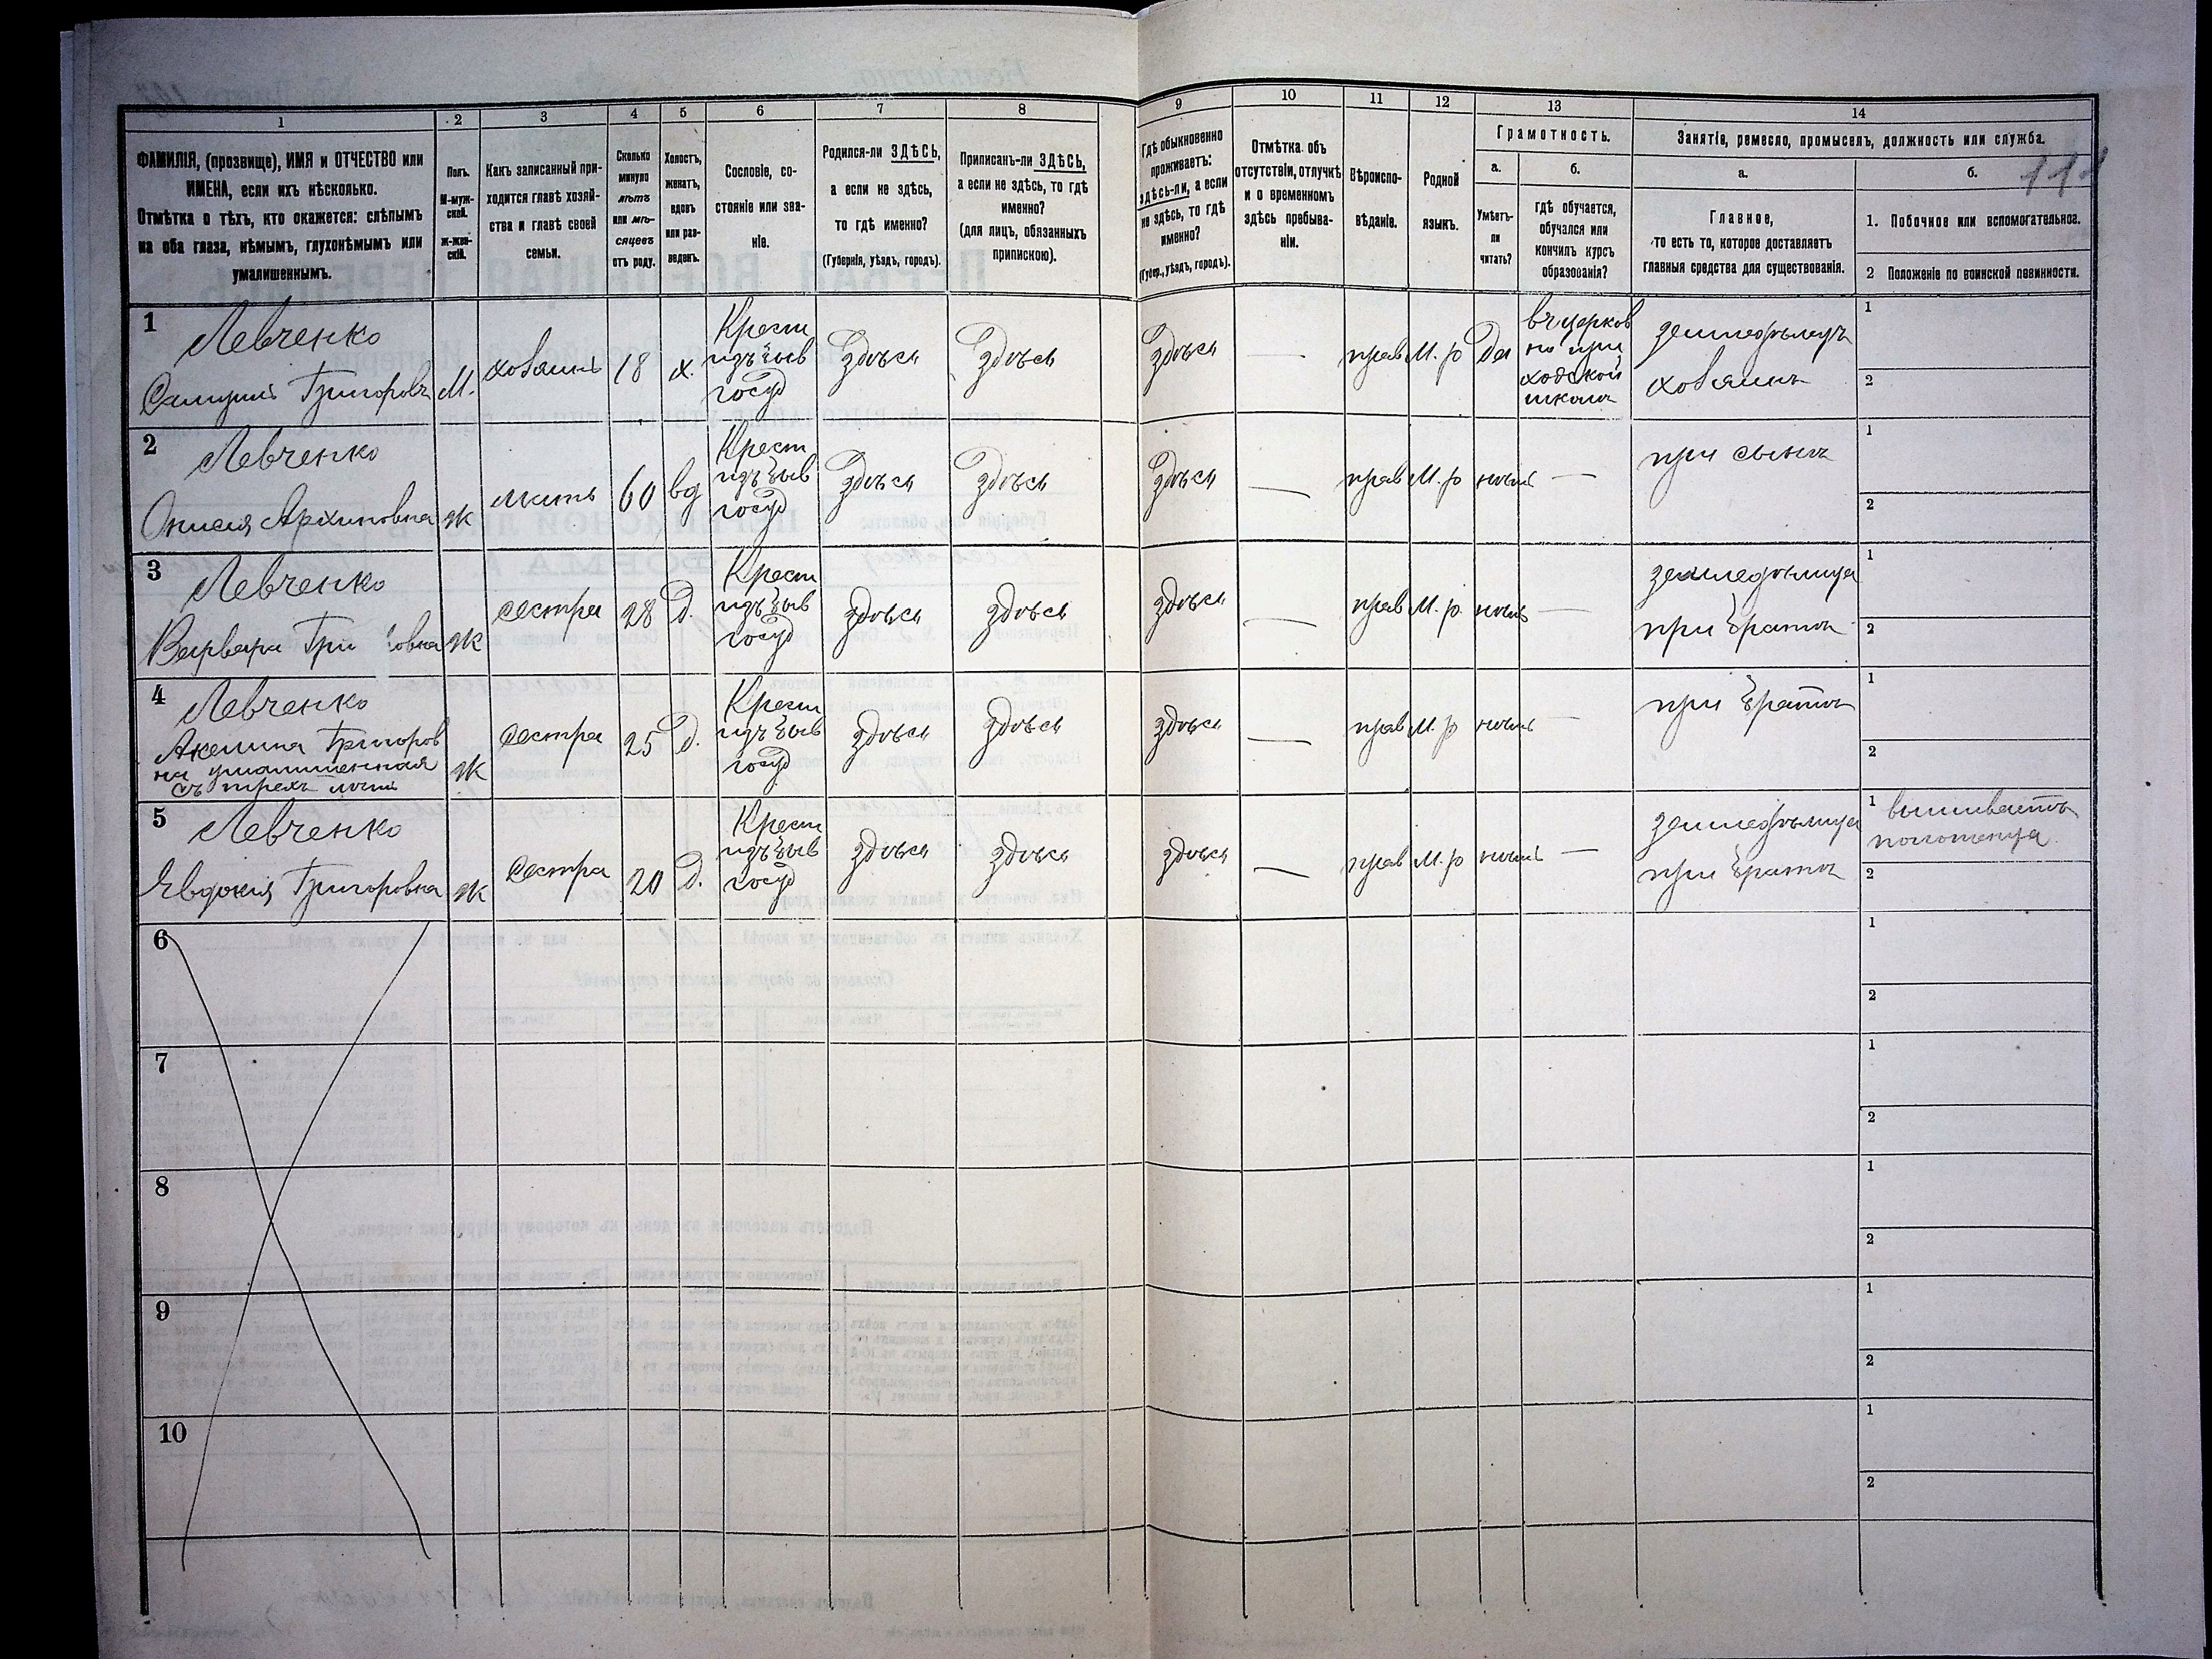 111
1 2 3 4 5 6 7 8 9 10 11 12 13 14
ФАМИЛІЯ, (прозвище), ИМЯ и ОТЧЕСТВО или
ИМЕНА, если ихъ нѣсколько.
Отмѣтка о тѣхъ, кто окажется: слѣпымъ
на оба глаза, нѣмымъ, глухонѣмымъ или
умалишеннымъ.
Полъ.
М-муж-
ской.
ж-жен-
скій.
Какъ записанный при-
ходится главѣ хозяй-
ства и главѣ своей
семьи.
Сколько
минуло
лѣтъ
или мѣ-
сяцевъ
отъ роду.
Холостъ,
женатъ,
вдовъ
или раз-
веденъ.
Сословіе, со-
стояніе или зва-
ніе.
Родился-ли ЗДѢСЬ,
а если не здѣсь,
то гдѣ именно?
(Губернія, уѣздъ, городъ).
Приписанъ-ли ЗДѢСЬ,
а если не здѣсь, то гдѣ
именно?
(для лицъ, обязанныхъ
припискою).
Гдѣ обыкновенно
проживаетъ:
здѣсь-ли, а если
не здѣсь, то гдѣ
именно?
(Губер., уѣздъ, городъ).
Отмѣтка объ
отсутствіи, отлучкѣ
и о временномъ
здѣсь пребыва-
ніи.
Вѣроиспо-
вѣданіе.
Родной
языкъ.
Грамотность.
а.
Умѣетъ-
ли
читать?
б.
гдѣ обучается,
обучался или
кончилъ курсъ
образованія?
Занятія, ремесло, промыселъ, должность или служба.
а.
Главное,
то есть то, которое доставляетъ
главныя средства для существованія.
б.
1. Побочное или вспомогательное.
2 Положеніе по воинской повинности.
1 Левченко
Самуилъ Григоровъ М. хозяинъ 18 х.
Крест
изъ быв
госуд
здѣсь здѣсь здѣсь — прав М. р Да
въ церков
но при
ходской
школѣ
земледѣлецъ
хозяинъ
1
2
2 Левченко
Онисія Архиповна ж мать 60 вд
Крест
изъ быв
госуд
здѣсь здѣсь здѣсь — прав М. р нѣтъ —
при сынѣ
1
2
3 Левченко
Варвара Гри овна ж сестра 28 Д.
Крест
изъ быв
госуд
здѣсь здѣсь здѣсь — прав М. р. нѣтъ —
земледѣлица
при братѣ
1
2
4 Левченко
Акелина Григоров
на умалишенная
съ трехъ лѣтъ
ж сестра 25 Д.
Крест
изъ быв
госуд
здѣсь здѣсь здѣсь — прав М. р нѣтъ —
при братѣ
1
2
5 Левченко
Евдокія Григоровна ж Сестра 20 Д.
Крест
изъ быв
госуд
здѣсь здѣсь здѣсь — прав М. р нѣтъ —
земледѣлица
при братѣ
1 вышиваетъ
полотенца
2
6
1
2
7
1
2
8
1
2
9
1
2
10
1
2